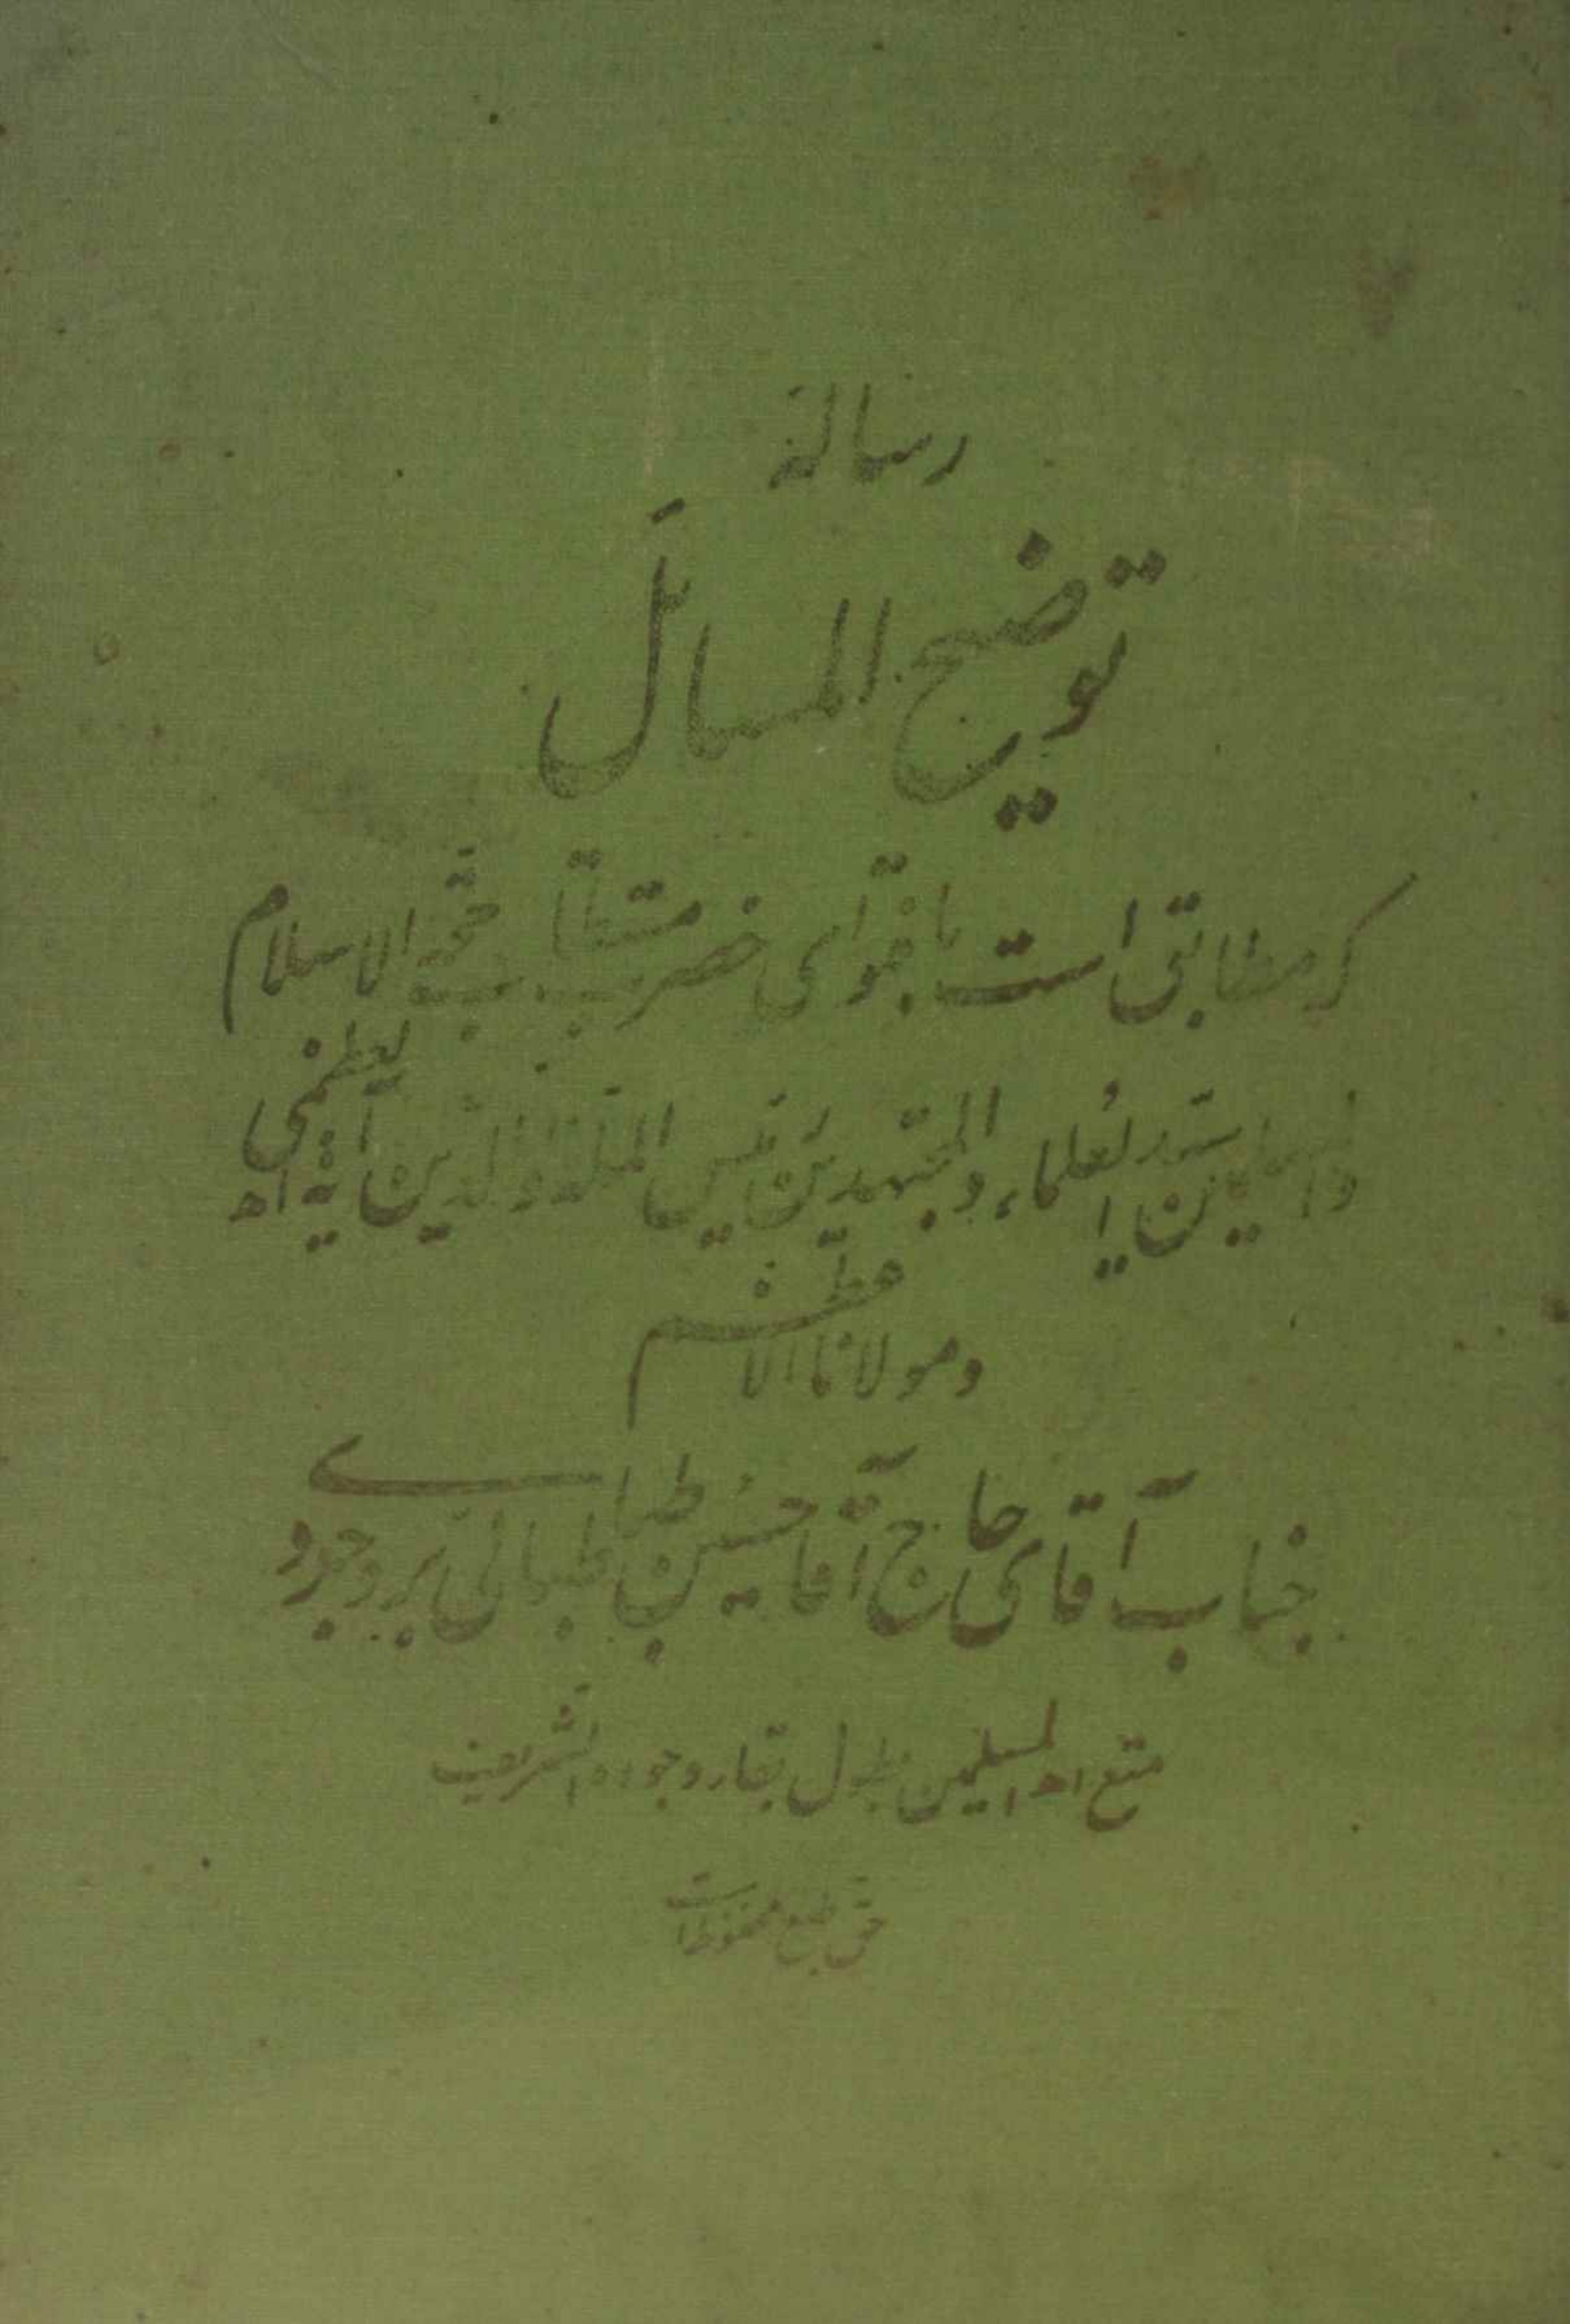 رسالهٔ
توضیح المسائل
که مطابق است با فتوای حضرت مستطاب حجة الاسلام
والمسلمین سید العلماء و المجتهدین رئیس الملة والدین آیة الله العظمی
و مولانا الاعظم
جناب آقای حاج آقا حسین طباطبائی بروجردی
متع الله المسلمین بطول بقاء وجوده الشریف
حق طبع محفوظ است